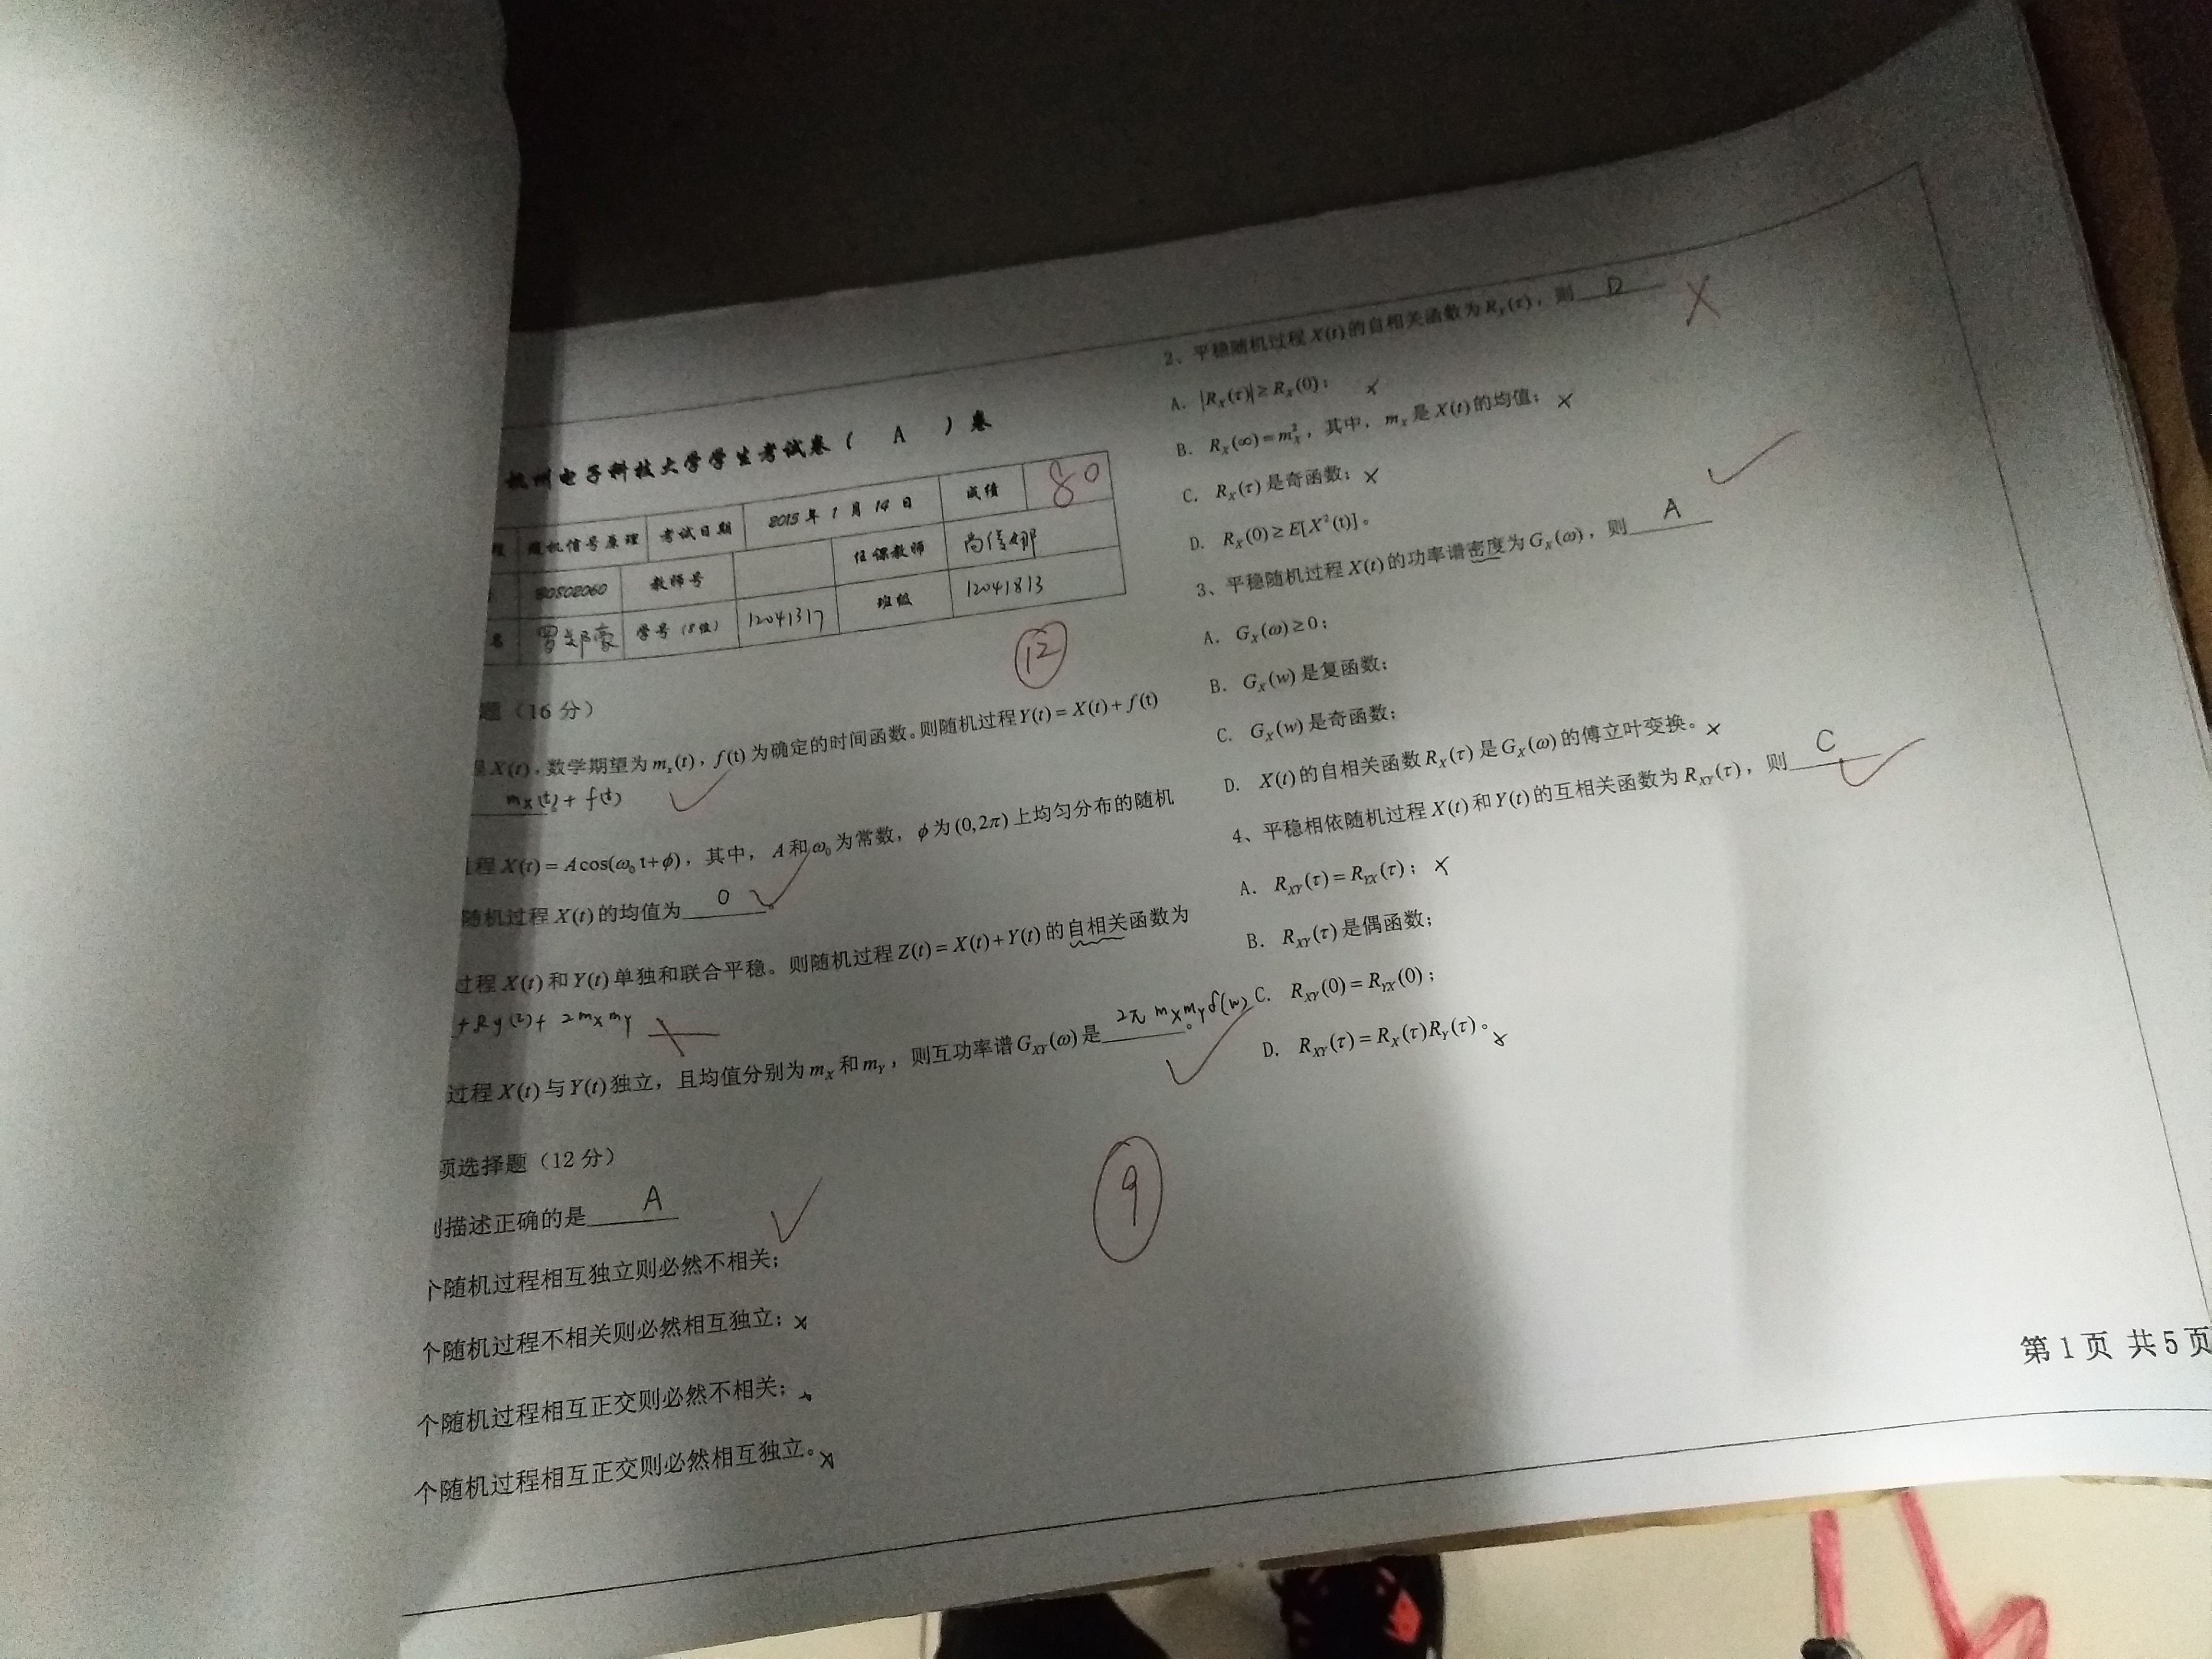 杭州电子科技大学学生考试卷（ A ）卷
随机信号原理 考试日期 2015年1月14日 成绩 80
教师号 任课教师
名 学号（8位） 12041317 班级 12041813
12
题（16分）
X(t)，数学期望为m_x(t)，f(t)为确定的时间函数。则随机过程Y(t)=X(t)+f(t)
m_X(t)+f(t)
程X(t)=Acos(ω₀t+ϕ)，其中，A和ω₀为常数，ϕ为(0,2π)上均匀分布的随机
随机过程X(t)的均值为 0 。
过程X(t)和Y(t)单独和联合平稳。则随机过程Z(t)=X(t)+Y(t)的自相关函数为
+Ry(τ)+2m_Xm_Y
过程X(t)与Y(t)独立，且均值分别为m_X和m_Y，则互功率谱G_XY(ω)是 2π m_Xm_Yδ(w) 。
项选择题（12分）
描述正确的是 A
个随机过程相互独立则必然不相关；
个随机过程不相关则必然相互独立；×
个随机过程相互正交则必然不相关；
个随机过程相互正交则必然相互独立。×
9
2、平稳随机过程X(t)的自相关函数为R_X(τ)，则 D
A. |R_X(τ)|≥R_X(0)； ×
B. R_X(∞)=m_X²，其中，m_X是X(t)的均值；×
C. R_X(τ)是奇函数；×
D. R_X(0)≥E[X²(t)]。
3、平稳随机过程X(t)的功率谱密度为G_X(ω)，则 A
A. G_X(ω)≥0；
B. G_X(w)是复函数；
C. G_X(w)是奇函数；
D. X(t)的自相关函数R_X(τ)是G_X(ω)的傅立叶变换。×
4、平稳相依随机过程X(t)和Y(t)的互相关函数为R_XY(τ)，则 C
A. R_XY(τ)=R_YX(τ)；×
B. R_XY(τ)是偶函数；
C. R_XY(0)=R_YX(0)；
D. R_XY(τ)=R_X(τ)R_Y(τ)。×
第1页 共5页